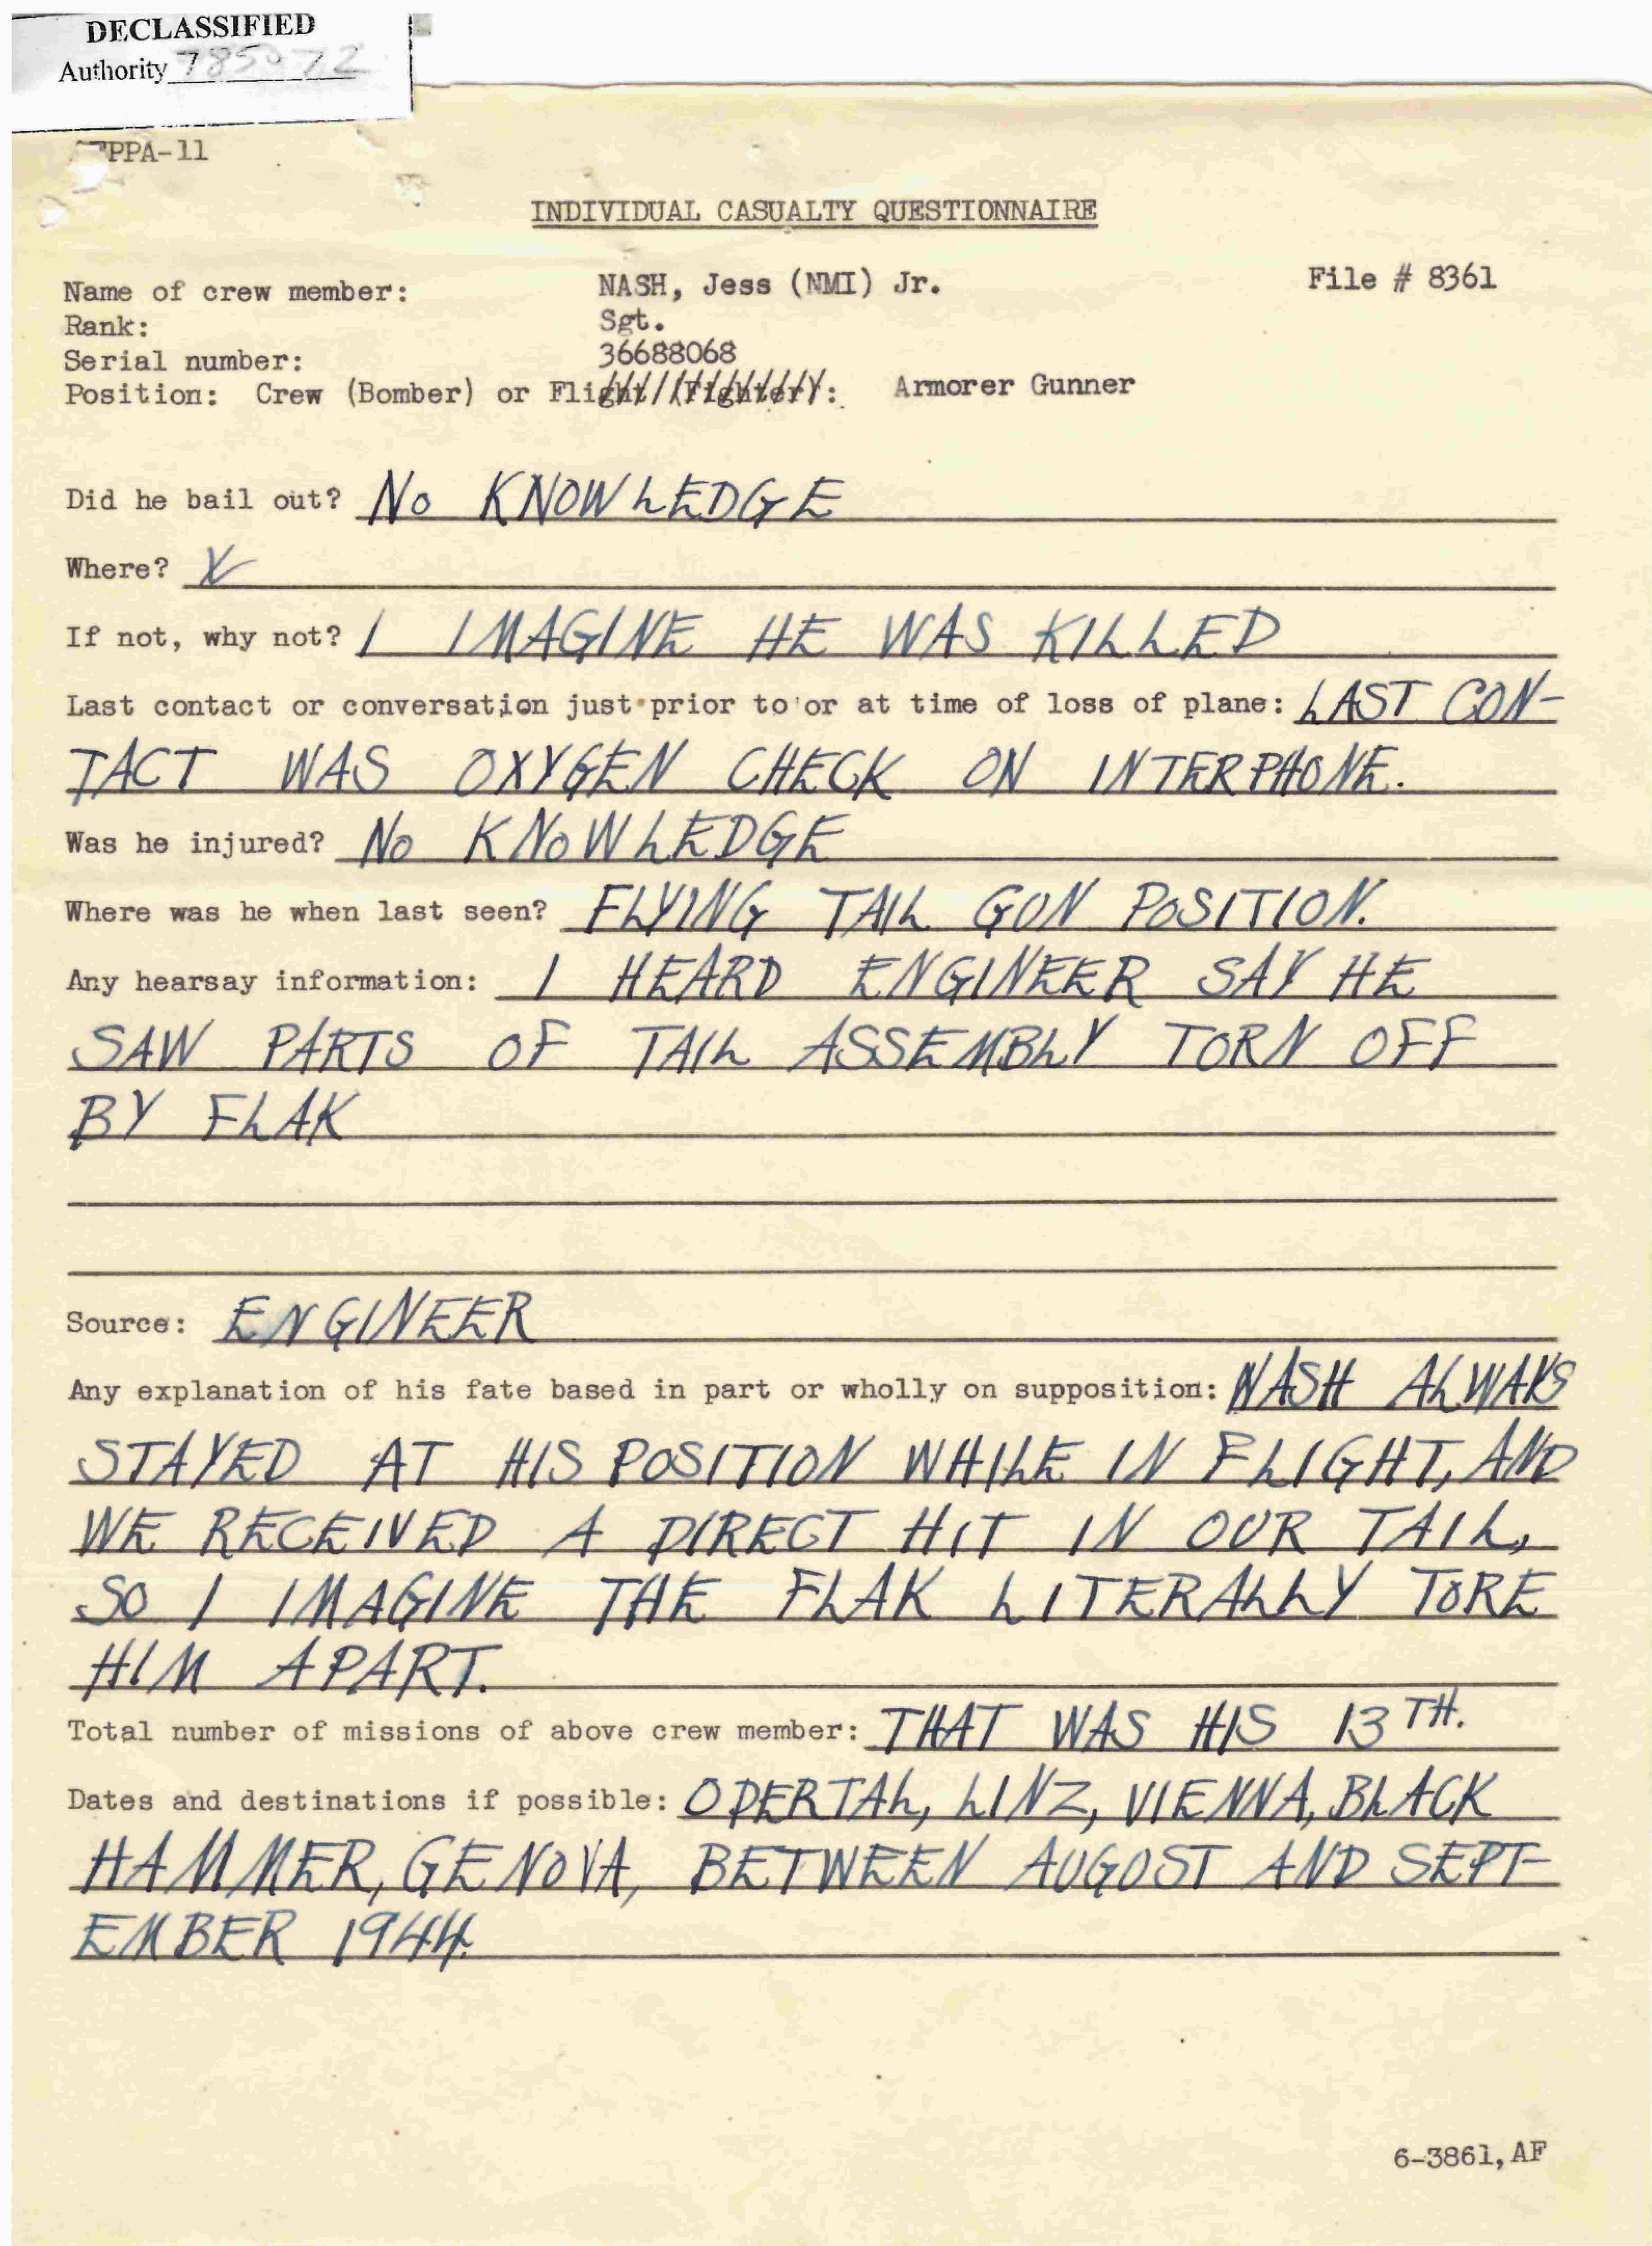 DECLASSIFIED
Authority 785072
PPA-11
INDIVIDUAL CASUALTY QUESTIONNAIRE
Name of crew member: NASH, Jess (NMI) Jr. File # 8361
Rank: Sgt.
Serial number: 36688068
Position: Crew (Bomber) or Flight (Fighter): Armorer Gunner
Did he bail out? NO KNOWLEDGE
Where? X
If not, why not? I IMAGINE HE WAS KILLED
Last contact or conversation just prior to or at time of loss of plane: LAST CON-
TACT WAS OXYGEN CHECK ON INTERPHONE.
Was he injured? NO KNOWLEDGE
Where was he when last seen? FLYING TAIL GUN POSITION.
Any hearsay information: I HEARD ENGINEER SAY HE
SAW PARTS OF TAIL ASSEMBLY TORN OFF
BY FLAK
Source: ENGINEER
Any explanation of his fate based in part or wholly on supposition: NASH ALWAYS
STAYED AT HIS POSITION WHILE IN FLIGHT, AND
WE RECEIVED A DIRECT HIT IN OUR TAIL,
SO I IMAGINE THE FLAK LITERALLY TORE
HIM APART.
Total number of missions of above crew member: THAT WAS HIS 13TH.
Dates and destinations if possible: ODERTAL, LINZ, VIENNA, BLACK
HAMMER, GENOVA, BETWEEN AUGUST AND SEPT-
EMBER 1944.
6-3861, AF